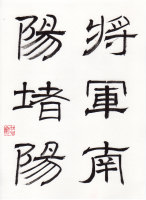 將軍南
陽堵陽